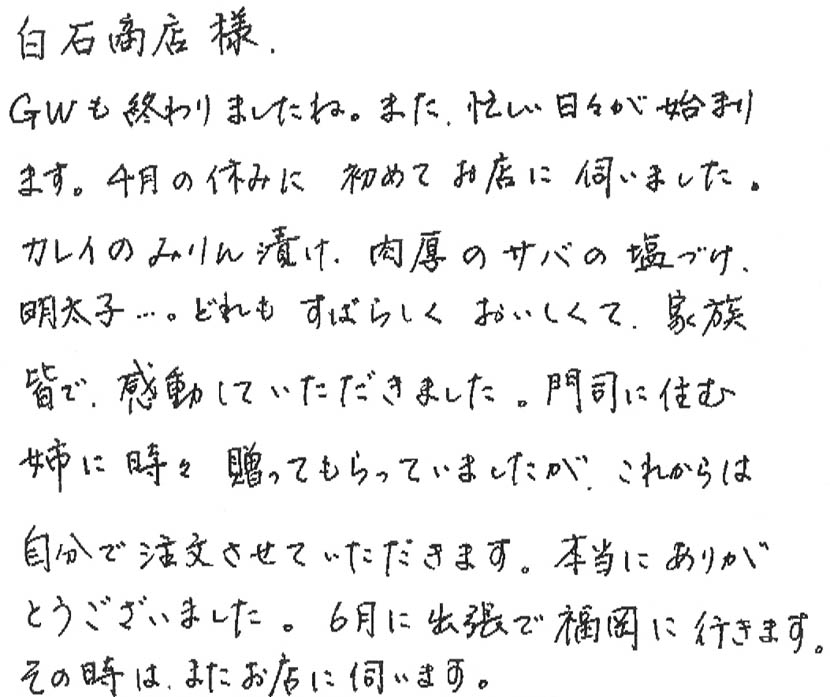 白石商店様.
GWも終わりましたね。また、忙しい日々が始まり
ます。4月の休みに 初めてお店に伺いました。
カレイのみりん漬け、肉厚のサバの塩づけ、
明太子…。どれも すばらしく おいしくて、家族
皆で、感動していただきました。門司に住む
姉に時々 贈ってもらっていましたが、これからは
自分で注文させていただきます。本当にありが
とうございました。6月に出張で福岡に行きます。
その時は、またお店に伺います。